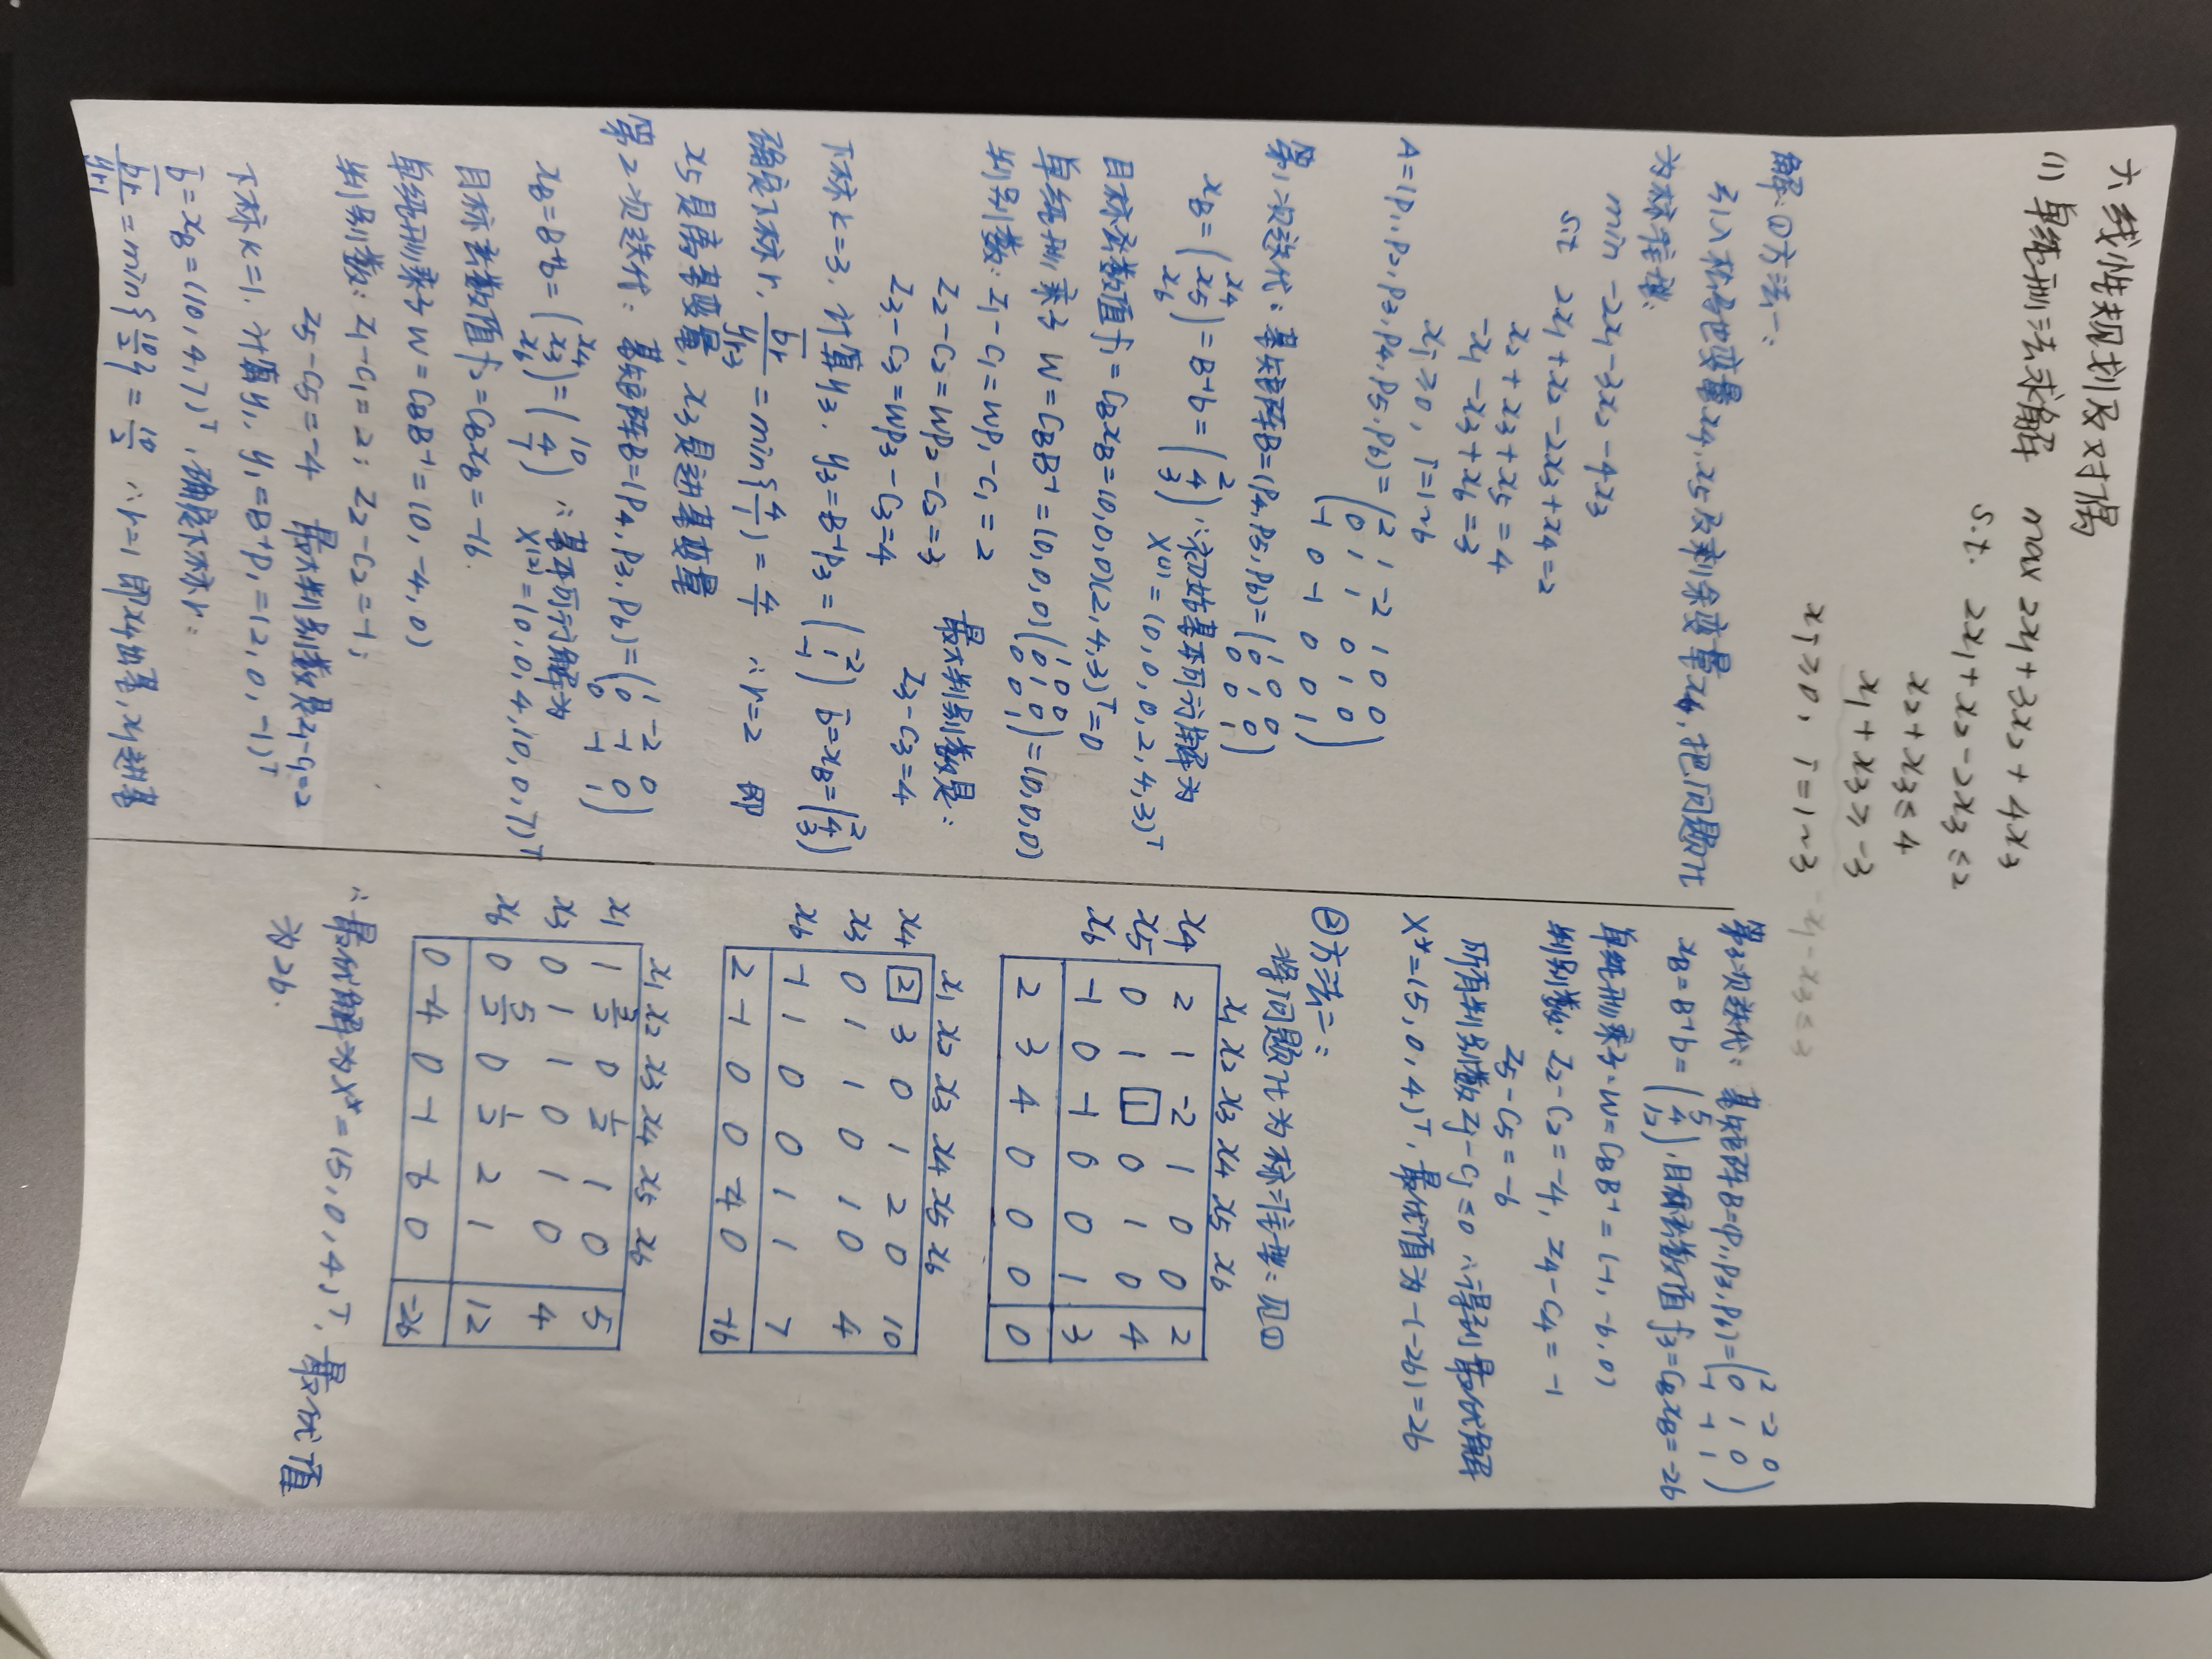 六 线性规划及对偶
(1) 单纯形法求解 max 2x₁+3x₂+4x₃
s.t. 2x₁+x₂-2x₃≤2
x₂+x₃≤4
x₁+x₃≥-3
xᵢ≥0, i=1~3 -x₁-x₃≤3
解:①方法一:
引入松弛变量x₄,x₅及剩余变量x₆,把问题化
为标准型:
min -2x₁-3x₂-4x₃
s.t 2x₁+x₂-2x₃+x₄=2
x₂+x₃+x₅=4
-x₁-x₃+x₆=3
xᵢ≥0, i=1~6
A=(P₁,P₂,P₃,P₄,P₅,P₆)=(2 1 -2 1 0 0
0 1 1 0 1 0
-1 0 -1 0 0 1)
第1次迭代:基矩阵B=(P₄,P₅,P₆)=(1 0 0
0 1 0
0 0 1)
x_B=(x₄ x₅ x₆)=B⁻¹b=(2 4 3) ∴初始基本可行解为
X⁽¹⁾=(0,0,0,2,4,3)ᵀ
目标函数值f₁=C_B x_B=(0,0,0)(2,4,3)ᵀ=0
单纯形乘子 W=C_B B⁻¹=(0,0,0)(1 0 0
0 1 0
0 0 1)=(0,0,0)
判别数: z₁-c₁=WP₁-c₁=2
z₂-c₂=WP₂-c₂=3 最大判别数是:
z₃-c₃=WP₃-c₃=4 z₃-c₃=4
下标k=3. 计算y₃. y₃=B⁻¹P₃=(-2 1 -1) b̄=x_B=(2 4 3)
确定下标r, b̄r/yr₃=min{4/1}=4/1 ∴r=2 即
x₅是离基变量, x₃是进基变量
第2次迭代: 基矩阵B=(P₄,P₃,P₆)=(1 -2 0
0 -1 0
0 -1 1)
x_B=B⁻¹b=(x₄ x₃ x₆)=(10 4 7) ∴基本可行解为
X⁽²⁾=(0,0,4,10,0,7)ᵀ
目标函数值f₂=C_B x_B=-16.
单纯形乘子W=C_B B⁻¹=(0,-4,0)
判别数: z₁-c₁=2; z₂-c₂=-1;
z₅-c₅=-4 最大判别数是z₁-c₁=2
下标k=1. 计算y₁, y₁=B⁻¹P₁=(2,0,-1)ᵀ
b̄=x_B=(10,4,7)ᵀ,确定下标r:
b̄r/yr₁=min{10/2}=10/2 ∴r=1 即x₄出基,x₁进基
第3次迭代: 基矩阵B=(P₁,P₃,P₆)=(2 -2 0
0 1 0
-1 -1 1)
x_B=B⁻¹b=(5 4 12),目标函数值f₃=C_B x_B=-26
单纯形乘子:W=C_B B⁻¹=(-1,-6,0)
判别数: z₂-c₂=-4, z₄-c₄=-1
z₅-c₅=-6
所有判别数zⱼ-cⱼ≤0 ∴得到最优解
X*=(5,0,4)ᵀ, 最优值为-(-26)=26
②方法二:
将问题化为标准型:见①
x₁ x₂ x₃ x₄ x₅ x₆
x₄ 2 1 -2 1 0 0 2
x₅ 0 1 1 0 1 0 4
x₆ -1 0 -1 0 0 1 3
2 3 4 0 0 0 0
x₁ x₂ x₃ x₄ x₅ x₆
x₄ 2 3 0 1 2 0 10
x₃ 0 1 1 0 1 0 4
x₆ -1 1 0 0 1 1 7
2 -1 0 0 -4 0 -16
x₁ x₂ x₃ x₄ x₅ x₆
x₁ 1 3/2 0 1/2 1 0 5
x₃ 0 1 1 0 1 0 4
x₆ 0 5/2 0 1/2 2 1 12
0 -4 0 -1 -6 0 -26
∴最优解为X*=(5,0,4)ᵀ, 最优值
为26.